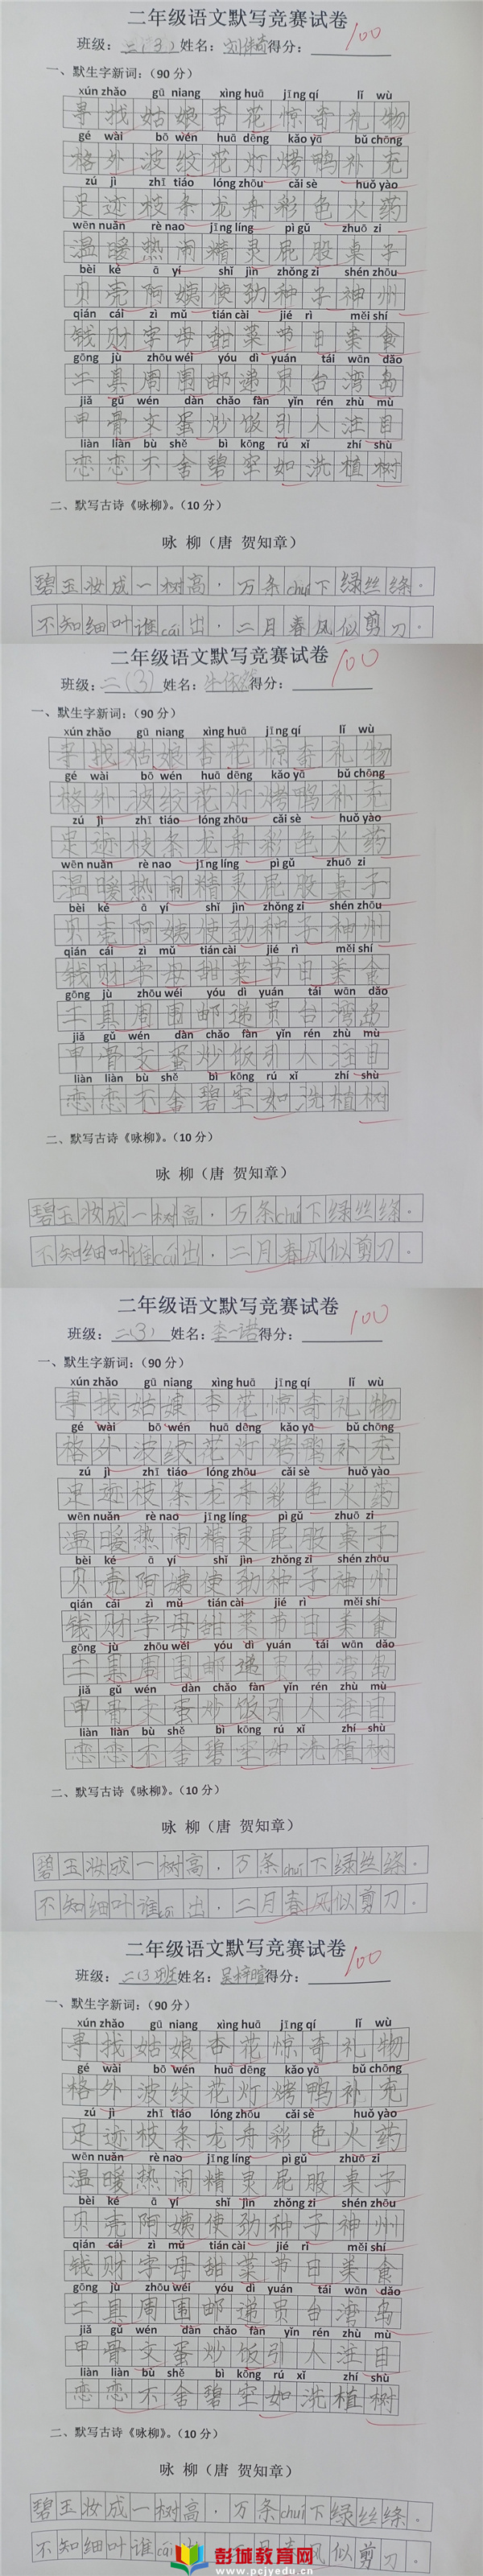 二年级语文默写竞赛试卷
班级：二（3）姓名：刘佳奇得分：
100
一、默生字新词：（90 分）
xún zhǎo gū niang xìng huā jīng qí lǐ wù
寻找姑娘杏花惊奇礼物
gé wài bō wén huā dēng kǎo yā bǔ chōng
格外波纹花灯烤鸭补充
zú jì zhī tiáo lóng zhōu cǎi sè huǒ yào
足迹枝条龙舟彩色火药
wēn nuǎn rè nao jīng líng pì gǔ zhuō zi
温暖热闹精灵屁股桌子
bèi ké ā yí shǐ jìn zhǒng zi shén zhōu
贝壳阿姨使劲种子神州
qián cái zì mǔ tián cài jié rì měi shí
钱财字母甜菜节日美食
gōng jù zhōu wéi yóu dì yuán tái wān dǎo
工具周围邮递员台湾岛
jiǎ gǔ wén dàn chǎo fàn yǐn rén zhù mù
甲骨文蛋炒饭引人注目
liàn liàn bù shě bì kōng rú xǐ zhí shù
恋恋不舍碧空如洗植树
二、默写古诗《咏柳》。（10 分）
咏 柳（唐 贺知章）
碧玉妆成一树高，万条chuí下绿丝绦。
不知细叶谁cái出，二月春风似剪刀。
二年级语文默写竞赛试卷
班级：二（3）姓名：得分：
100
一、默生字新词：（90 分）
xún zhǎo gū niang xìng huā jīng qí lǐ wù
寻找姑娘杏花惊奇礼物
gé wài bō wén huā dēng kǎo yā bǔ chōng
格外波纹花灯烤鸭补充
zú jì zhī tiáo lóng zhōu cǎi sè huǒ yào
足迹枝条龙舟彩色火药
wēn nuǎn rè nao jīng líng pì gǔ zhuō zi
温暖热闹精灵屁股桌子
bèi ké ā yí shǐ jìn zhǒng zi shén zhōu
贝壳阿姨使劲种子神州
qián cái zì mǔ tián cài jié rì měi shí
钱财字母甜菜节日美食
gōng jù zhōu wéi yóu dì yuán tái wān dǎo
工具周围邮递员台湾岛
jiǎ gǔ wén dàn chǎo fàn yǐn rén zhù mù
甲骨文蛋炒饭引人注目
liàn liàn bù shě bì kōng rú xǐ zhí shù
恋恋不舍碧空如洗植树
二、默写古诗《咏柳》。（10 分）
咏 柳（唐 贺知章）
碧玉妆成一树高，万条chuí下绿丝绦。
不知细叶谁cái出，二月春风似剪刀。
二年级语文默写竞赛试卷
班级：二（3）姓名：李一诺得分：
100
一、默生字新词：（90 分）
xún zhǎo gū niang xìng huā jīng qí lǐ wù
寻找姑娘杏花惊奇礼物
gé wài bō wén huā dēng kǎo yā bǔ chōng
格外波纹花灯烤鸭补充
zú jì zhī tiáo lóng zhōu cǎi sè huǒ yào
足迹枝条龙舟彩色火药
wēn nuǎn rè nao jīng líng pì gǔ zhuō zi
温暖热闹精灵屁股桌子
bèi ké ā yí shǐ jìn zhǒng zi shén zhōu
贝壳阿姨使劲种子神州
qián cái zì mǔ tián cài jié rì měi shí
钱财字母甜菜节日美食
gōng jù zhōu wéi yóu dì yuán tái wān dǎo
工具周围邮递员台湾岛
jiǎ gǔ wén dàn chǎo fàn yǐn rén zhù mù
甲骨文蛋炒饭引人注目
liàn liàn bù shě bì kōng rú xǐ zhí shù
恋恋不舍碧空如洗植树
二、默写古诗《咏柳》。（10 分）
咏 柳（唐 贺知章）
碧玉妆成一树高，万条chuí下绿丝绦。
不知细叶谁cái出，二月春风似剪刀。
二年级语文默写竞赛试卷
班级：二（3）班姓名：吴梓暄得分：
100
一、默生字新词：（90 分）
xún zhǎo gū niang xìng huā jīng qí lǐ wù
寻找姑娘杏花惊奇礼物
gé wài bō wén huā dēng kǎo yā bǔ chōng
格外波纹花灯烤鸭补充
zú jì zhī tiáo lóng zhōu cǎi sè huǒ yào
足迹枝条龙舟彩色火药
wēn nuǎn rè nao jīng líng pì gǔ zhuō zi
温暖热闹精灵屁股桌子
bèi ké ā yí shǐ jìn zhǒng zi shén zhōu
贝壳阿姨使劲种子神州
qián cái zì mǔ tián cài jié rì měi shí
钱财字母甜菜节日美食
gōng jù zhōu wéi yóu dì yuán tái wān dǎo
工具周围邮递员台湾岛
jiǎ gǔ wén dàn chǎo fàn yǐn rén zhù mù
甲骨文蛋炒饭引人注目
liàn liàn bù shě bì kōng rú xǐ zhí shù
恋恋不舍碧空如洗植树
二、默写古诗《咏柳》。（10 分）
咏 柳（唐 贺知章）
碧玉妆成一树高，万条chuí下绿丝绦。
不知细叶谁cái出，二月春风似剪刀。
彭城教育网
www.pcjyedu.cn